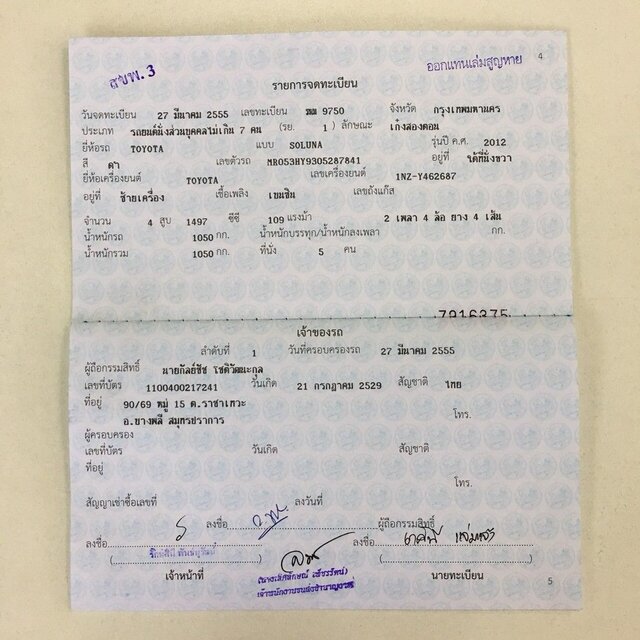 สขพ. 3
ออกแทนเล่มสูญหาย 4
รายการจดทะเบียน
วันจดทะเบียน 27 มีนาคม 2555 เลขทะเบียน 9750 จังหวัด กรุงเทพมหานคร
ประเภท รถยนต์นั่งส่วนบุคคลไม่เกิน 7 คน (รย. 1) ลักษณะ เก๋งสองตอน
ยี่ห้อรถ TOYOTA แบบ SOLUNA รุ่นปี ค.ศ. 2012
สี ดำ เลขตัวรถ MR053HY9305287841 อยู่ที่ ใต้ที่นั่งขวา
ยี่ห้อเครื่องยนต์ TOYOTA เลขเครื่องยนต์ 1NZ-Y462687
อยู่ที่ ซ้ายเครื่อง เชื้อเพลิง เบนซิน เลขถังแก๊ส
จำนวน 4 สูบ 1497 ซีซี 109 แรงม้า 2 เพลา 4 ล้อ ยาง 4 เส้น
น้ำหนักรถ 1050 กก. น้ำหนักบรรทุก/น้ำหนักลงเพลา กก.
น้ำหนักรวม 1050 กก. ที่นั่ง 5 คน
7916375
เจ้าของรถ
ลำดับที่ 1 วันที่ครอบครองรถ 27 มีนาคม 2555
ผู้ถือกรรมสิทธิ์ นายกัลย์ธัช โชติวัฒนะกุล
เลขที่บัตร 1100400217241 วันเกิด 21 กรกฎาคม 2529 สัญชาติ ไทย
ที่อยู่ 90/69 หมู่ 15 ต.ราชาเทวะ
อ.บางพลี สมุทรปราการ โทร.
ผู้ครอบครอง
เลขที่บัตร วันเกิด สัญชาติ
ที่อยู่
โทร.
สัญญาเช่าซื้อเลขที่ ลงวันที่
ลงชื่อ ผู้ถือกรรมสิทธิ์
ลงชื่อ ลงชื่อ
เจ้าหน้าที่ นายทะเบียน
5